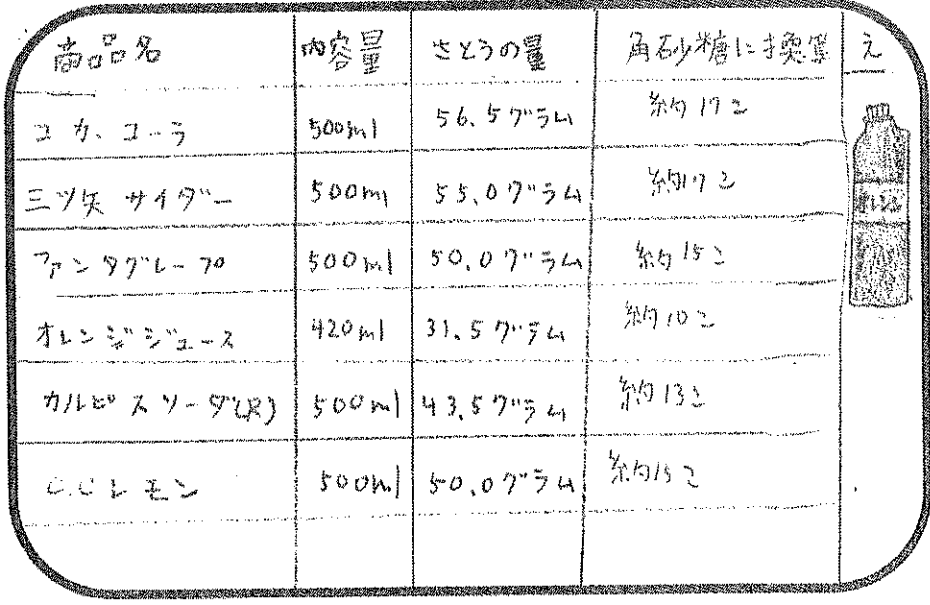 商品名 内容量 さとうの量 角砂糖に換算 え
コカ、コーラ 500ml 56.5グラム 約17こ
三ツ矢サイダー 500ml 55.0グラム 約17こ
ファンタグレープ 500ml 50.0グラム 約15こ
オレンジジュース 420ml 31.5グラム 約10こ
カルピスソーダ(R) 500ml 43.5グラム 約13こ
C.Cレモン 500ml 50.0グラム 約15こ